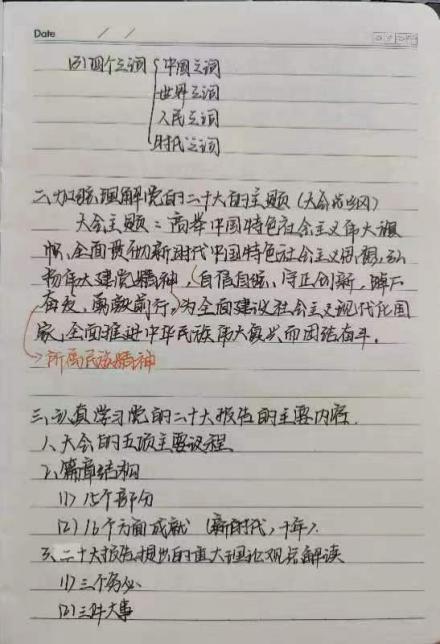 Date / /
(3)四个之词{中国之词
世界之词
人民之词
时代之词
二、加强理解党的二十大的主题(大会总纲)
大会主题:高举中国特色社会主义伟大旗
帜、全面贯彻新时代中国特色社会主义思想,弘
扬伟大建党精神,自信自强、守正创新,踔厉
奋发、勇毅前行,为全面建设社会主义现代化国
家、全面推进中华民族伟大复兴而团结奋斗。
→所属民族精神
三、认真学习党的二十大报告的主要内容.
1、大会的五项主要议程
2、篇章结构
(1) 15个部分
(2) 16个方面成就 (新时代,十年).
3、二十大报告提出的重大理论观点解读
(1) 三个务必
(2) 三件大事